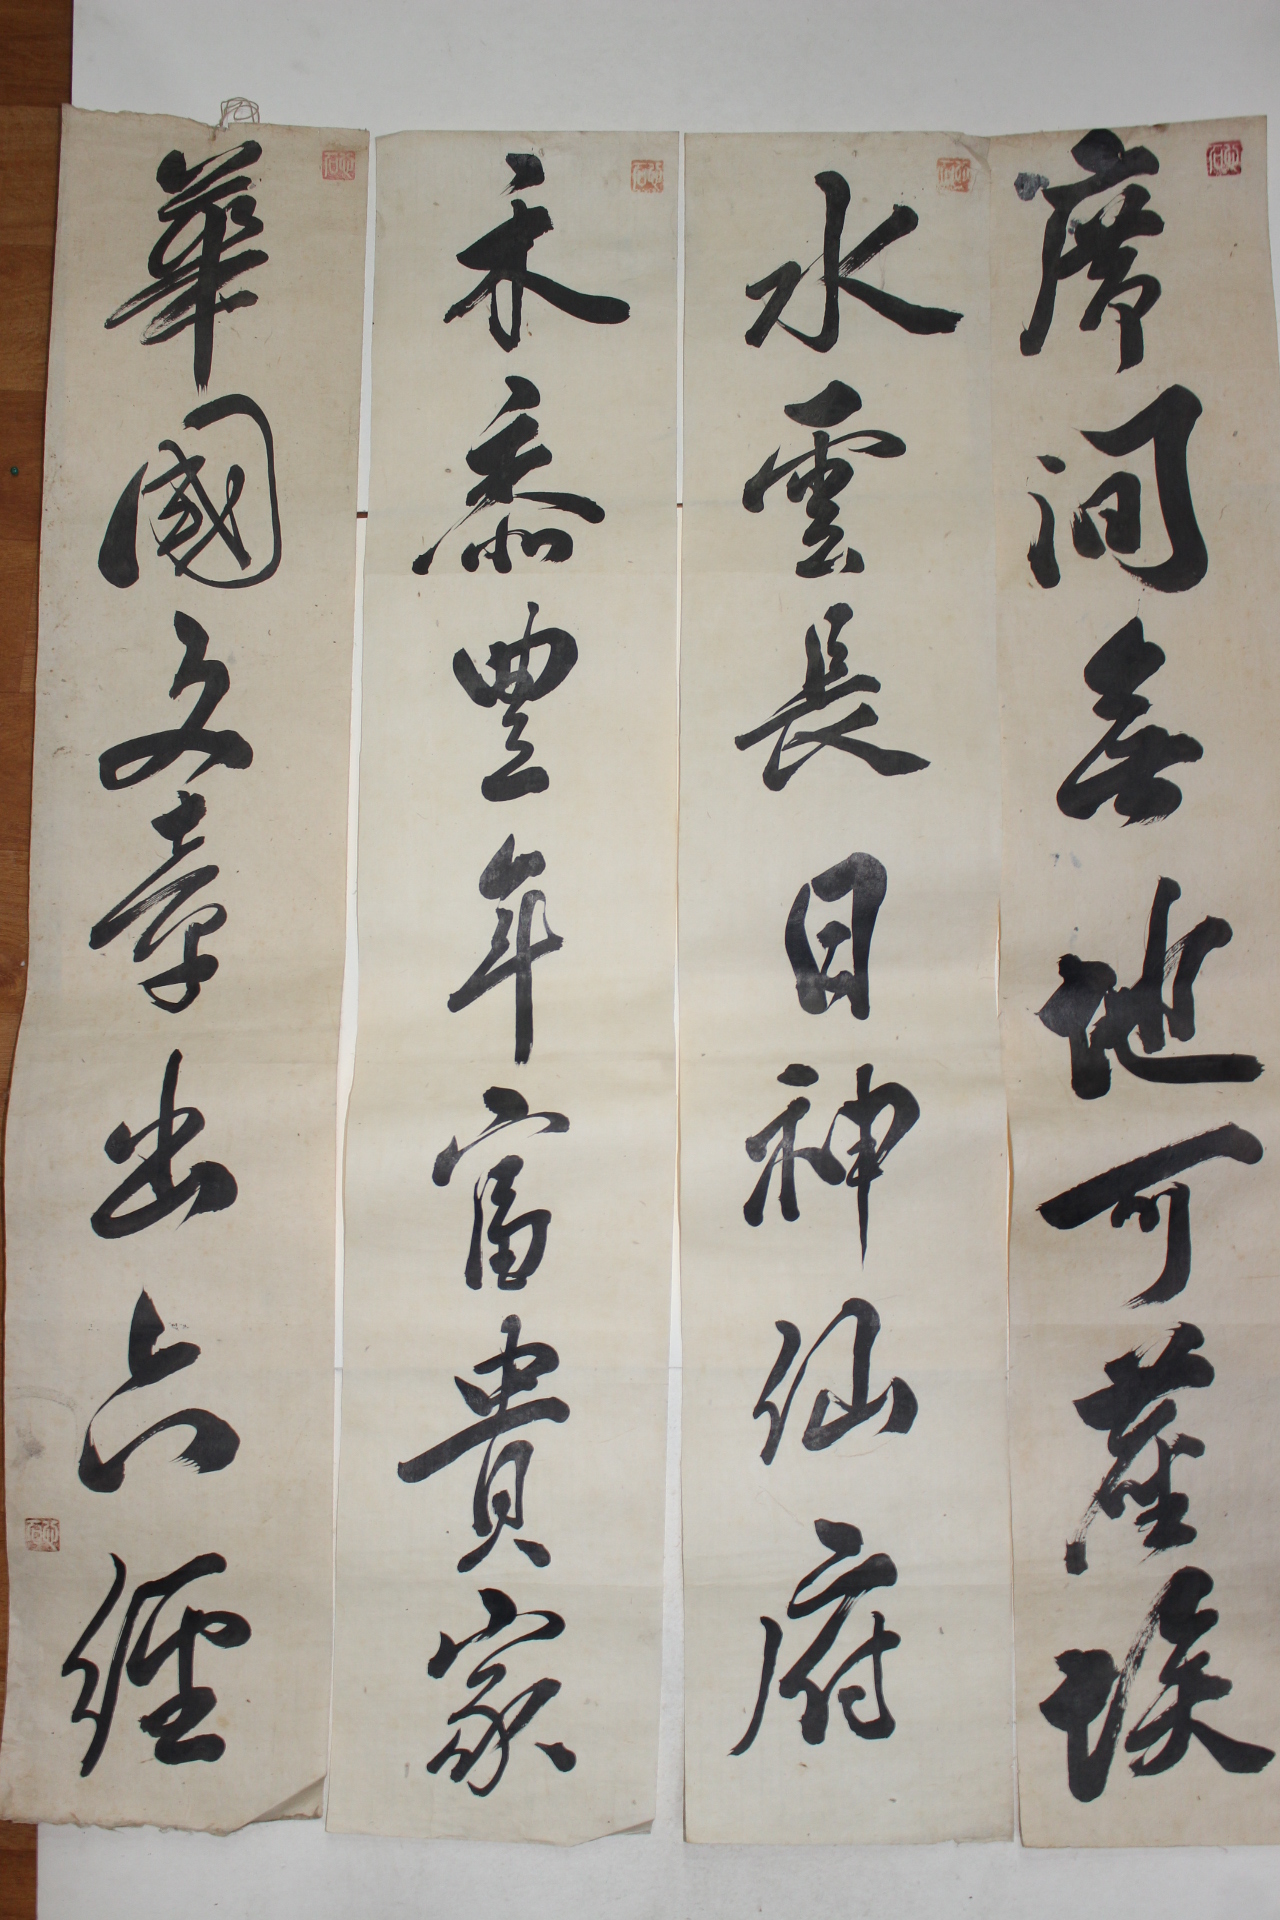 席間無地可產埃
水雲長日神仙府
禾黍豐年富貴家
華國文章出六經